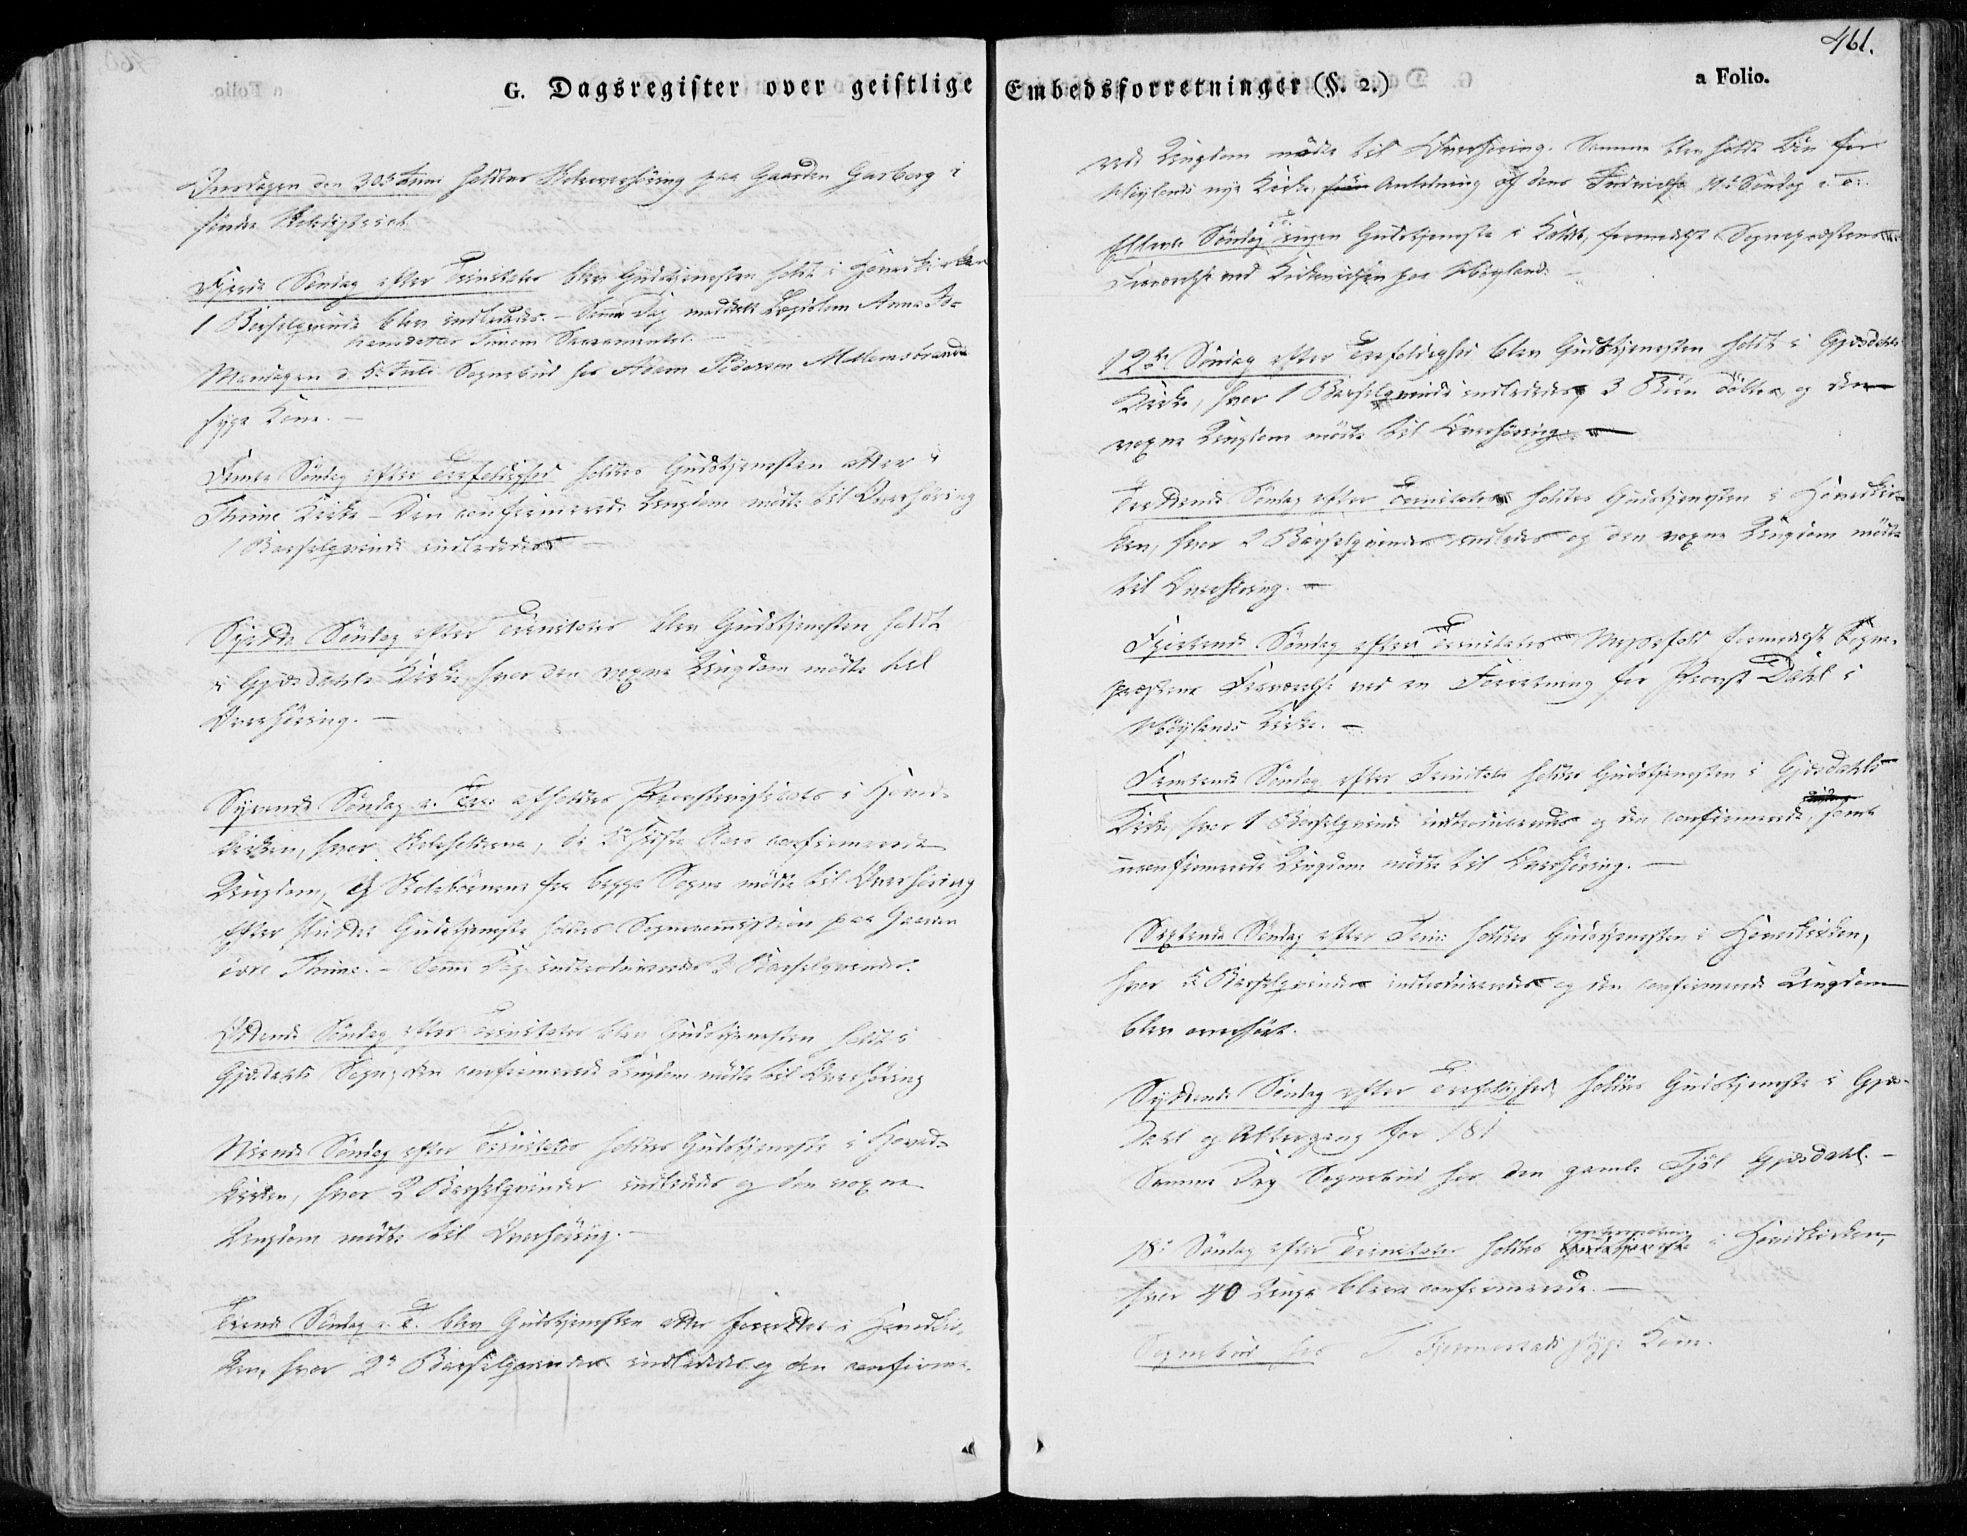 461.
G. Dagsregister over geistlige Embedsforretninger (§. 2.)
a Folio.
Onsdagen den 30te Juni holdtes Skoleoverhöring paa Gaarden Garborg i
söndre Skoledistrict.
Fjerde Söndag efter Trinitatis blev Gudstjenesten holdt i Hovedkirken
1 Barselqvinde blev indledet. – Samme Dag meddelt Anna
Sacramentet. –
Mandagen d. 5te Juli Sognebud hos Adam Pedersen Mellemstrands
syge Kone. –
Femte Söndag efter Trefoldighed holdtes Gudstjenesten atter i
Thime Kirke – Den confirmerede Ungdom mödte til Overhöring
1 Barselqvinde indlededes –
Sjette Söndag efter Trinitatis blev Gudstjenesten holdt
i Gjesdahls Kirke, hvor den voxne Ungdom mödte til
Overhöring. –
Syvende Söndag e. Tre: afholdtes Provstevisitats i Hoved-
kirken, hvor Skoleholderne, de sidste Aars confirmerede
Ungdom, og Skolebörnene fra begge Sogne mödte til Overhöring
Efter sluttet Gudstjeneste holdtes Sognecommission paa Gaarden
övre Thime. – Samme Dag introduceredes 3 Barselqvinder.
Ottende Söndag efter Trinitatis blev Gudstjenesten holdt i
Gjesdahls Sogn, den confirmerede Ungdom mödte til Overhöring
Niende Söndag efter Trinitatis holdtes Gudstjeneste i Hoved-
kirken, hvor 2 Barselqvinder indlededes og den voxne
Ungdom mödte til Overhöring. –
Tiende Söndag e. T. blev Gudstjenesten atter forrettet i Hovedkir-
ken, hvor 2de Barselqvinder indlededes og den confirme-
rede Ungdom mödte til Overhöring. Samme blev holdt Bön for
Höylands nye Kirke, Anledning af dens Indvielse 11te Söndag e. T.
Ellevte Söndag ingen Gudstjeneste i Kaldet, formedelst Sognepræstens
Nærværelse ved Kirkevielsen paa Höyland. –
12te Söndag efter Trefoldighed blev Gudstjenesten holdt i Gjesdahls
Kirke, hvor 1 Barselqvinde indlededes, 3 Börn döbtes, og den
voxne Ungdom mödte til Overhöring. –
Trettende Söndag efter Trinitatis holdtes Gudstjenesten i Hovedkir-
ken, hvor 2 Barselqvinder indledes og den voxne Ungdom mödte
til Overhöring. –
Fjortende Söndag efter Trinitatis Messefald formedelst Sogne-
præstens Fraværelse ved en Forretning for Provst Dahl i
Höylands Kirke. –
Femtende Söndag efter Trinitatis holdtes Gudstjenesten i Gjesdahls
Kirke, hvor 1 Barselqvinde introduceredes og den confirmerede, samt
uconfirmerede Ungdom mödte til Overhöring. –
Sextende Söndag efter Trini: holdtes Gudstjenesten i Hovedkirken,
hvor Barselqvinder introduceredes og den confirmerede Ungdom
blev overhört.
Syttende Söndag efter Trefoldighed holdtes Gudstjeneste i Gjes-
dahl og Altergang for 181
Samme Dag Sognebud hos den gamle Gjesdahl. –
18de Söndag efter Trinitatis holdtes i Hovedkirken,
hvor 40 Unge bleve confirmerede. –
Sognebud hos T. syge Kone.